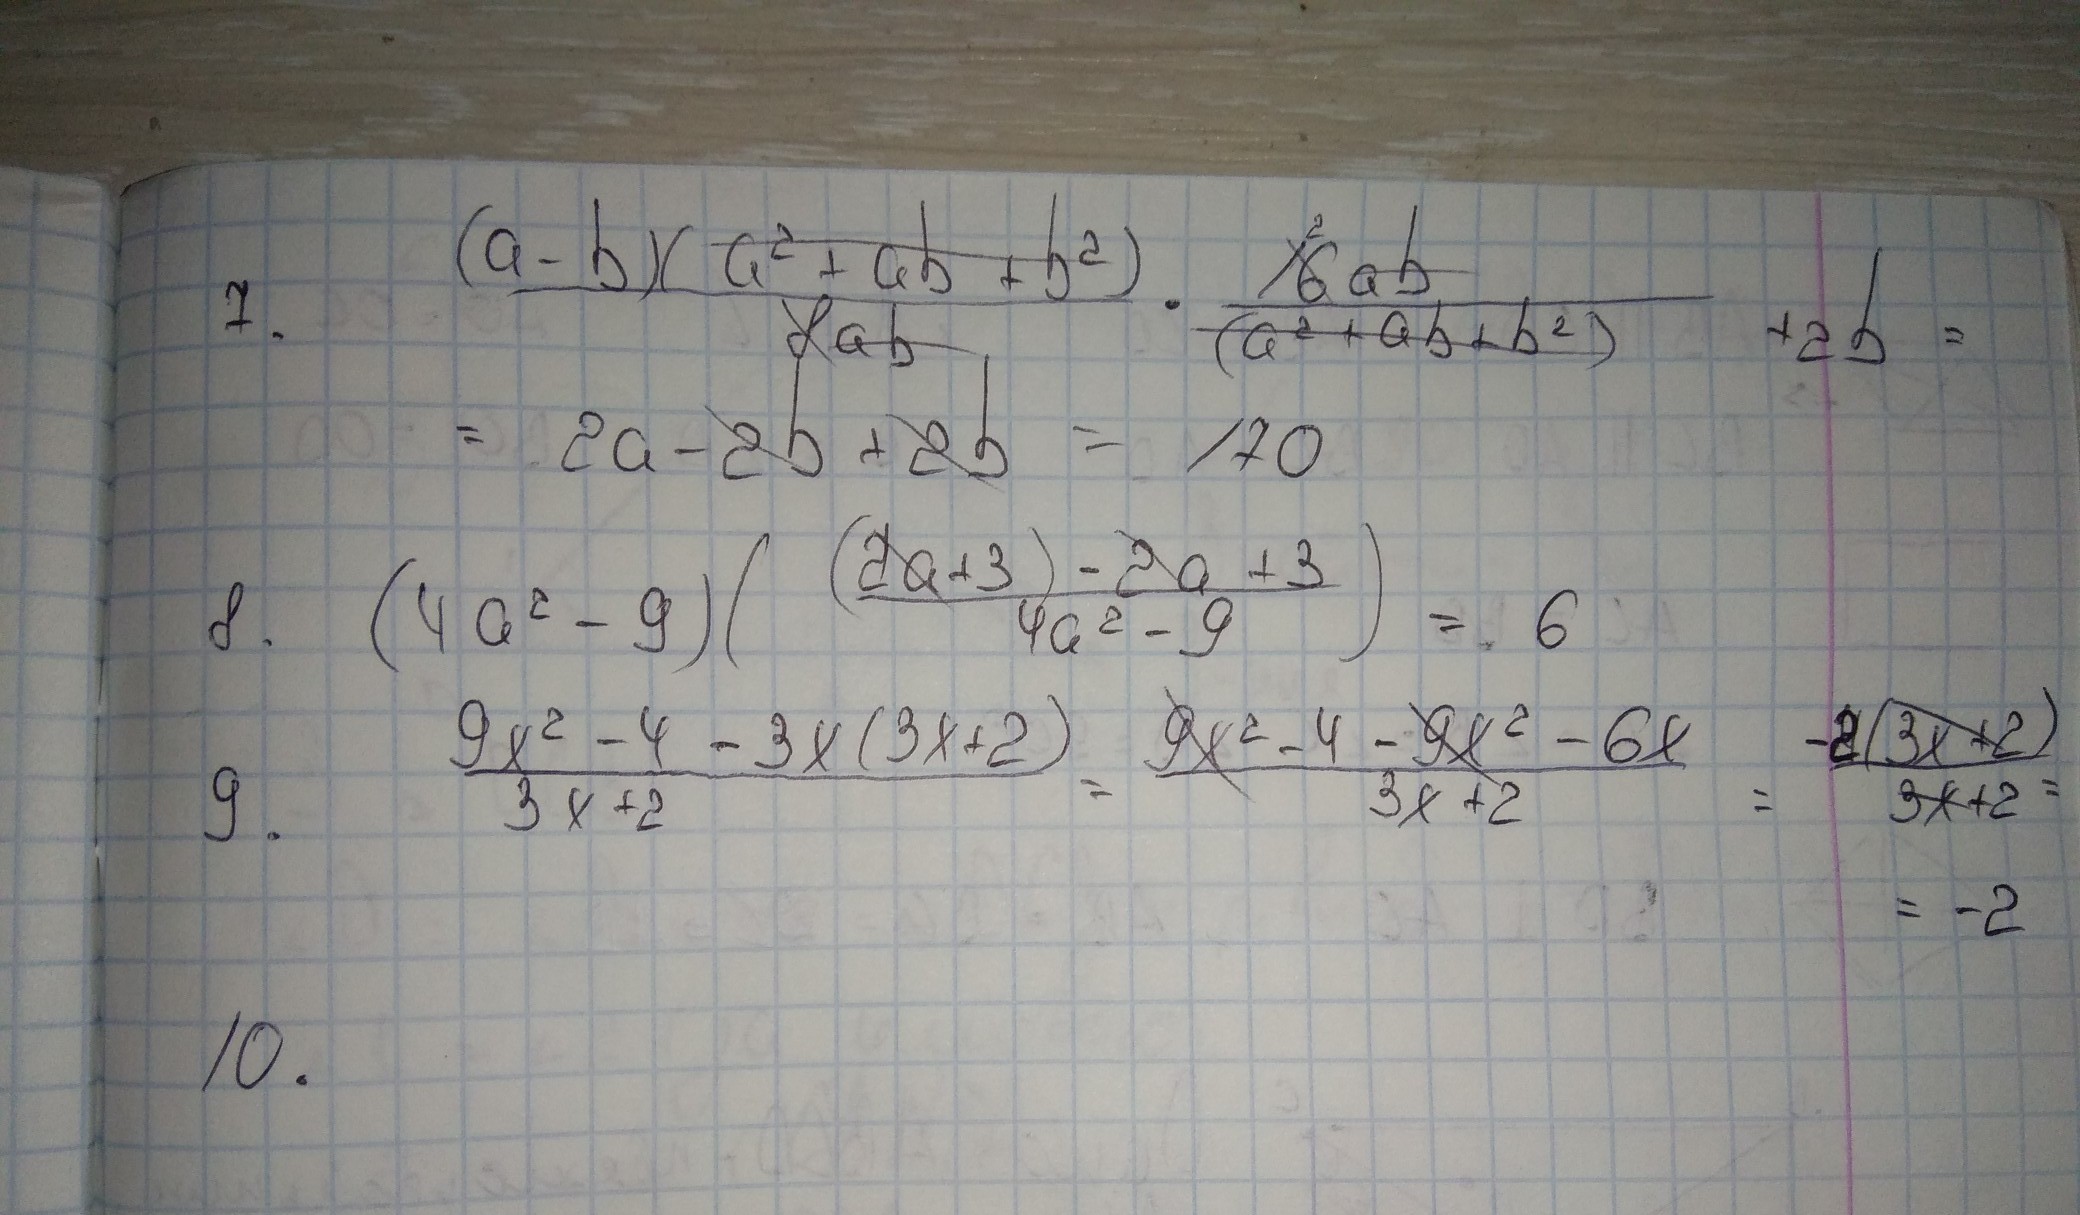 7. (a-b)(a²+ab+b²)/8ab · 16ab/(a²+ab+b²) +2b =
= 2a-2b+2b = 170
8. (4a²-9)((2a+3)-2a+3/4a²-9) = 6
9. 9x²-4-3x(3x+2)/3x+2 = 9x²-4-9x²-6x/3x+2 = -2(3x+2)/3x+2 =
= -2
10.